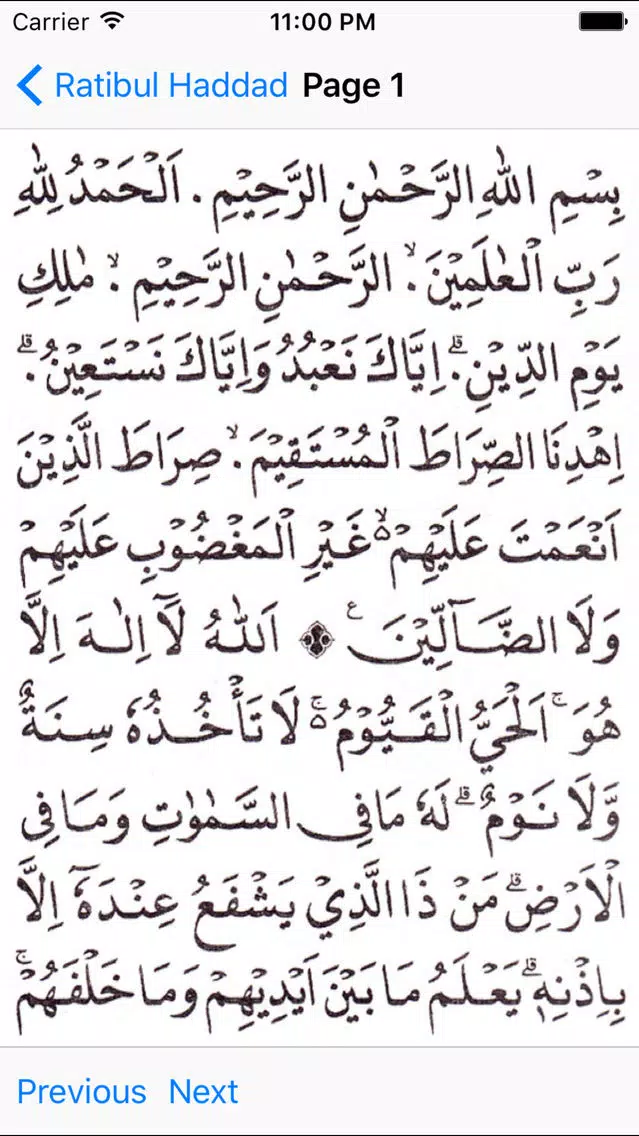 Carrier 11:00 PM
Ratibul Haddad Page 1
بِسْمِ اللّٰهِ الرَّحْمٰنِ الرَّحِيْمِ . اَلْحَمْدُ لِلّٰهِ
رَبِّ الْعٰلَمِيْنَ ۙ. الرَّحْمٰنِ الرَّحِيْمِ ۙ. مٰلِكِ
يَوْمِ الدِّيْنِ ۗ. اِيَّاكَ نَعْبُدُ وَاِيَّاكَ نَسْتَعِيْنُ ۗ.
اِهْدِنَا الصِّرَاطَ الْمُسْتَقِيْمَ ۙ. صِرَاطَ الَّذِيْنَ
اَنْعَمْتَ عَلَيْهِمْ ۙ۵ غَيْرِ الْمَغْضُوْبِ عَلَيْهِمْ
وَلَا الضَّآلِّيْنَ ࣖ ۞ اَللّٰهُ لَآ اِلٰهَ اِلَّا
هُوَ ۚ اَلْحَيُّ الْقَيُّوْمُ ۚ۵ لَا تَأْخُذُهٗ سِنَةٌ
وَّلَا نَوْمٌ ۗ لَهٗ مَا فِى السَّمٰوٰتِ وَمَا فِى
الْاَرْضِ ۗ مَنْ ذَا الَّذِيْ يَشْفَعُ عِنْدَهٗٓ اِلَّا
بِاِذْنِهٖ ۗ يَعْلَمُ مَا بَيْنَ اَيْدِيْهِمْ وَمَا خَلْفَهُمْ ۚ
Previous Next